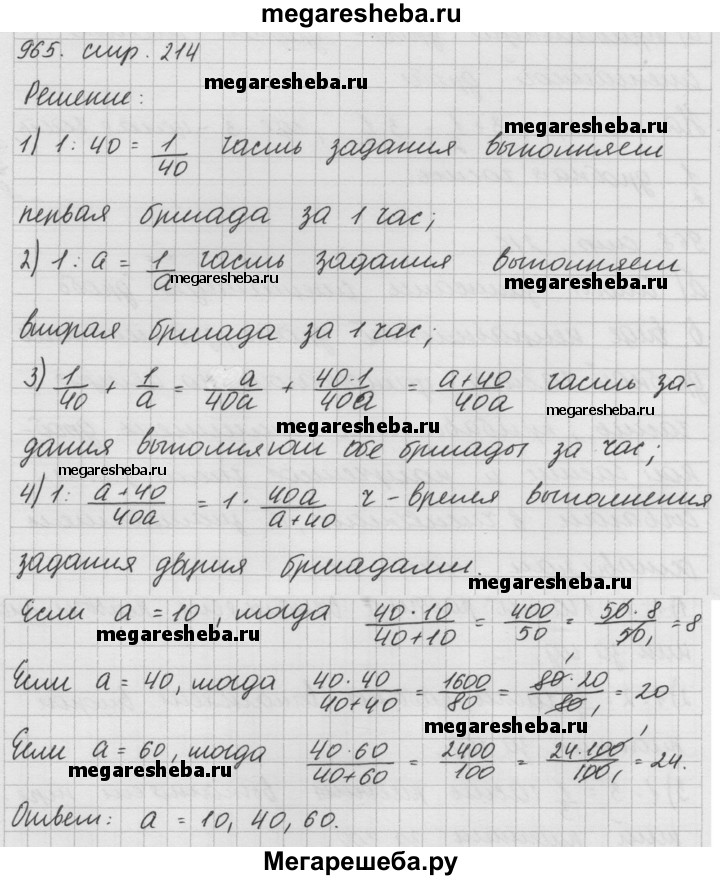 megaresheba.ru
965. стр. 214
megaresheba.ru
Решение:
megaresheba.ru
1) 1 : 40 = 1/40 часть задания выполняет
первая бригада за 1 час;
2) 1 : a = 1/a часть задания выполняет
megaresheba.ru megaresheba.ru
вторая бригада за 1 час;
3) 1/40 + 1/a = a/40a + 40·1/40a = a+40/40a часть за-
megaresheba.ru megaresheba.ru
дания выполняют обе бригады за час;
megaresheba.ru
4) 1 : a+40/40a = 1 · 40a/a+40 ч - время выполнения
задания двумя бригадами.
megaresheba.ru
Если a = 10, тогда 40·10/40+10 = 400/50 = 50·8/50 1 = 8
megaresheba.ru
Если a = 40, тогда 40·40/40+40 = 1600/80 = 80·20/80 1 = 20
megaresheba.ru
Если a = 60, тогда 40·60/40+60 = 2400/100 = 24·100/100 1 = 24.
megaresheba.ru
Ответ: a = 10, 40, 60.
Мегарешеба.ру